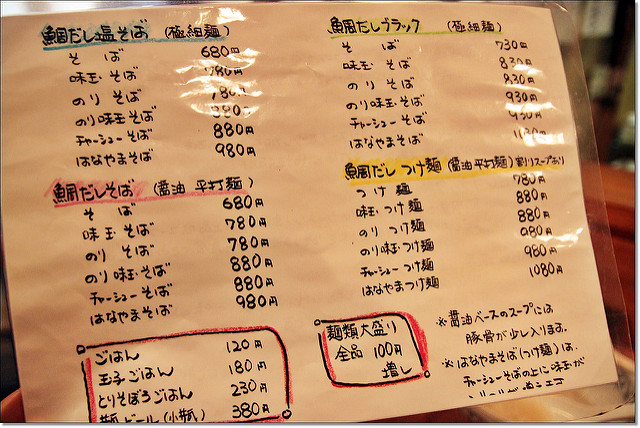 鯛だし塩そば (極細麺)
そば 680円
味玉そば 780円
のりそば 780円
のり味玉そば 880円
チャーシューそば 880円
はなやまそば 980円
鯛だしそば (醤油 平打麺)
そば 680円
味玉そば 780円
のりそば 780円
のり味玉そば 880円
チャーシューそば 880円
はなやまそば 980円
ごはん 120円
玉子ごはん 180円
とりそぼろごはん 230円
瓶ビール (小瓶) 380円
鯛だしブラック (極細麺)
そば 730円
味玉そば 830円
のりそば 830円
のり味玉そば 930円
チャーシューそば 930円
はなやまそば
鯛だしつけ麺 (醤油 平打麺) 割りスープあり
つけ麺 780円
味玉つけ麺 880円
のりつけ麺 880円
のり味玉つけ麺 980円
チャーシューつけ麺 980円
はなやまつけ麺 1080円
麺類大盛り
全品 100円
増し
※醤油ベースのスープには
豚骨が少し入ります。
※はなやまそば(つけ麺)は、
チャーシューそばの上に味玉が